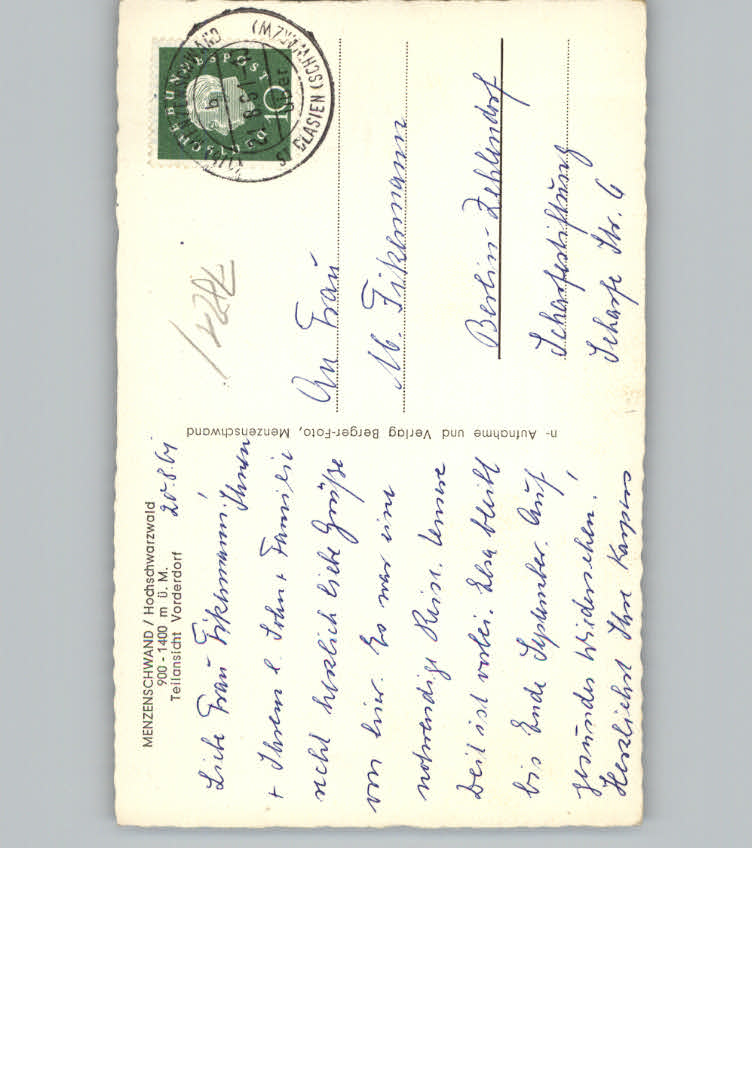 MENZENSCHWAND / Hochschwarzwald
900 - 1400 m ü. M.
Teilansicht Vorderdorf
20.8.61
Liebe Frau Fikermann! Ihnen
+ Ihrem l. Sohn + Familie
recht herzlich liebe Grüße
von hier. Es war eine
notwendige Reise. Unsere
Zeit ist vorbei. Elsa bleibt
bis Ende September. Auf
gesundes Wiedersehen!
Herzlichst Ihre
n- Aufnahme und Verlag Berger-Foto, Menzenschwand
DEUTSCHE BUNDESPOST
ST BLASIEN (SCHWARZW)
über
An Frau
M. Fikermann
Berlin-Zehlendorf
Scharfestiftung
Scharfe Str. 6